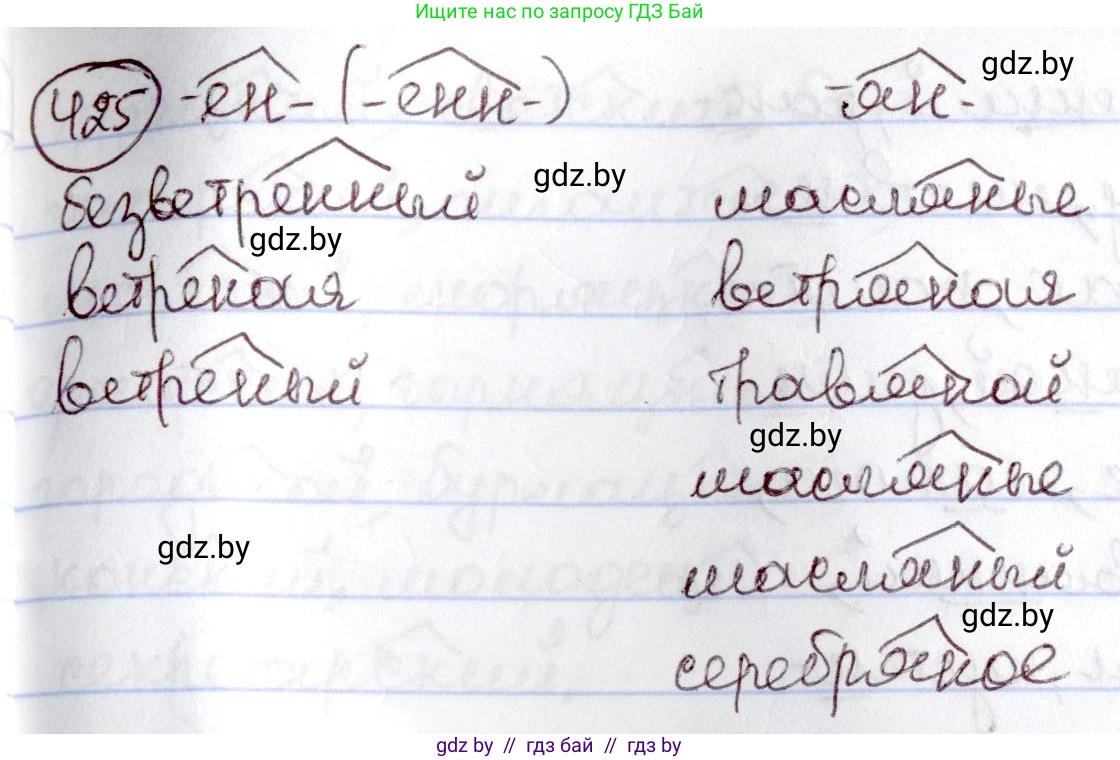 Ищите нас по запросу ГДЗ Бай
425 -ен- (-енн-) -ян- gdz.by
безветренный gdz.by масляные
gdz.by
ветреная ветряная
ветреный травяной
gdz.by
масляные
gdz.by масляный
gdz.by
серебряное
gdz.by // гдз бай // гдз by